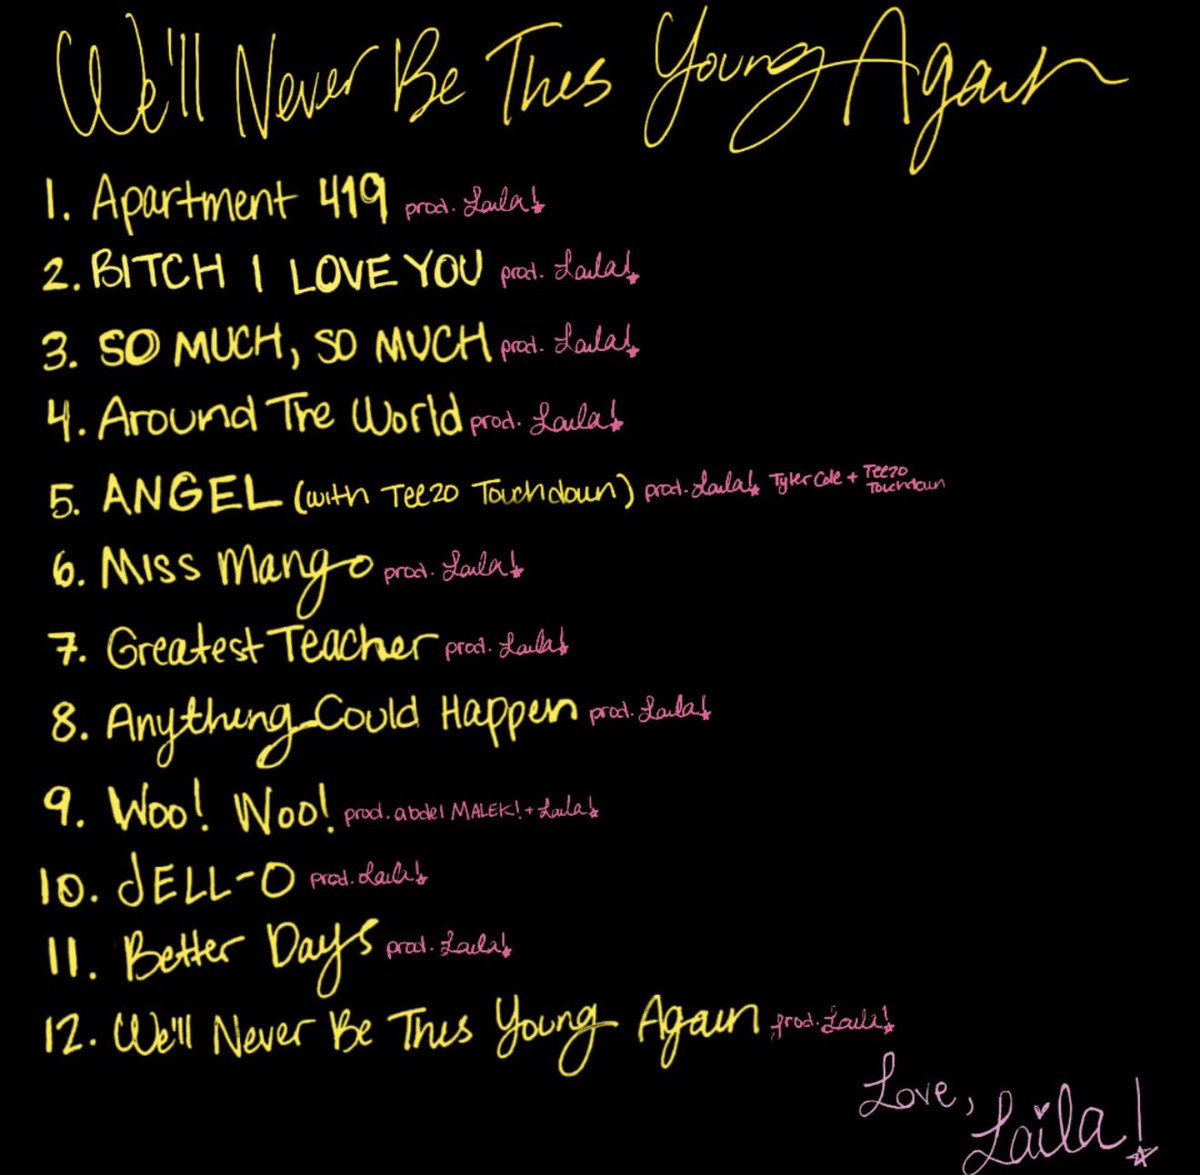 We'll Never Be This Young Again
1. Apartment 419 prod. Laila!
2. BITCH I LOVE YOU prod. Laila!
3. SO MUCH, SO MUCH prod. Laila!
4. Around The World prod. Laila!
5. ANGEL (with Teezo Touchdown) prod. Laila! Tyler Cole + Teezo Touchdown
6. Miss Mango prod. Laila!
7. Greatest Teacher prod. Laila!
8. Anything Could Happen prod. Laila!
9. Woo! Woo! prod. abdel MALEK! + Laila!
10. JELL-O prod. Laila!
11. Better Days prod. Laila!
12. We'll Never Be This Young Again prod. Laila!
Love,
Laila!